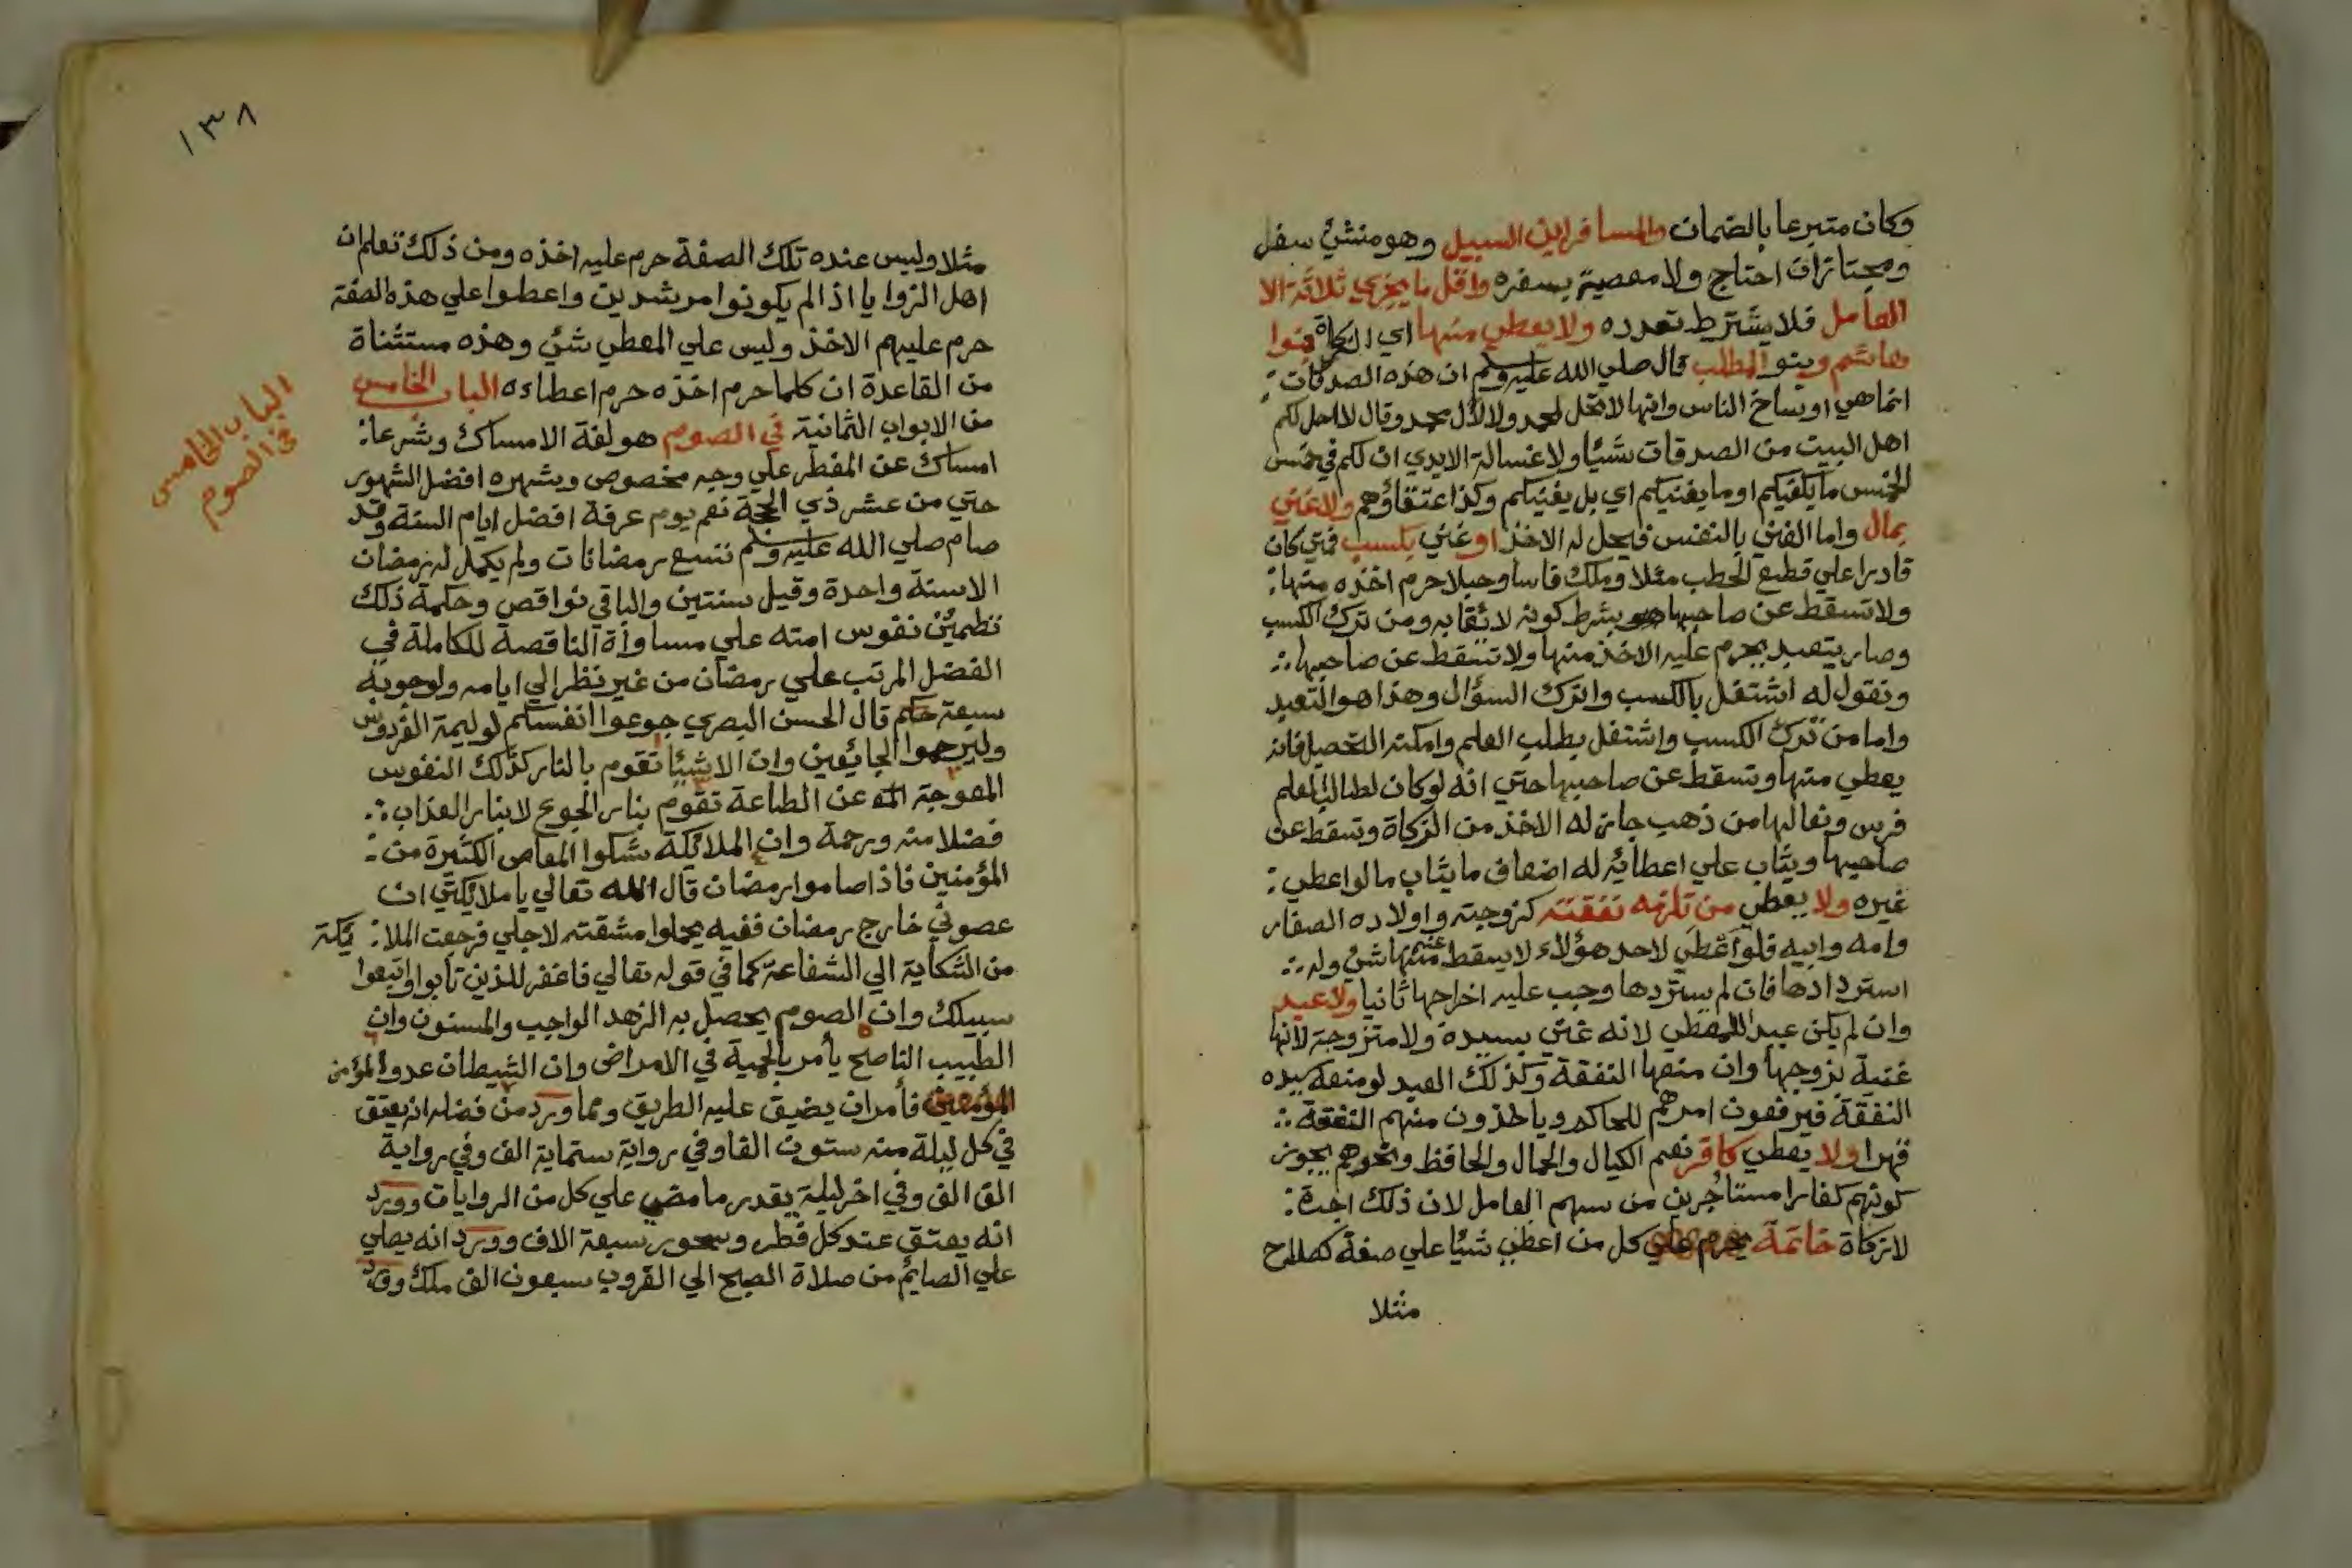 وكان متبرعا بالضمان والمسافر ابن السبيل وهو منشئ سفر
ومجتاز ان احتاج ولا معصية بسفره واقل ما يجزي ثلاثة الا
العامل فلا يشترط تعدده ولا يعطي منها اي الزكاة بنوا
هاشم وبنو المطلب قال صلي الله عليه وسلم ان هذه الصدقات
انما هي اوساخ الناس وانها لا تحل لمحمد ولا لال محمد وقال لا احل لكم
اهل البيت من الصدقات شيئا ولا غسالة الايدي ان لكم في خمس
الخمس ما يكفيكم او ما يغنيكم اي بل يغنيكم وكذا عتقاؤهم ولا غني
بمال واما الغني بالنفس فيحل له الاخذ او غني بكسب فمتي كان
قادرا علي قطع الحطب مثلا وملك فاسا وحبلا حرم اخذه منها
ولا تسقط عن صاحبها بشرط كونه لائقا به ومن ترك الكسب
وصار يتعبد يحرم عليه الاخذ منها ولا تسقط عن صاحبها
ونقول له اشتغل بالكسب واترك السؤال وهذا هو التعبد
واما من ترك الكسب واشتغل بطلب العلم وامكنه التحصيل فانه
يعطي منها وتسقط عن صاحبها حتي انه لو كان لطالب العلم
فرس ونعالها من ذهب جاز له الاخذ من الزكاة وتسقط عن
صاحبها ويثاب علي اعطائه له اضعاف ما يثاب ما لو اعطي
غيره ولا يعطي من تلزمه نفقته كزوجته واولاده الصغار
وامه وابيه فلو اعطي لاحد هؤلاء لا يسقط عنه منها شئ وله
استردادها فان لم يستردها وجب عليه اخراجها ثانيا ولا عبد
وان لم يكن عبد المعطي لانه غني بسيده ولا متزوجة لانها
غنية بزوجها وان منعها النفقة وكذلك العبد لو منعه سيده
النفقة فيرفعون امرهم للحاكم وياخذون منهم النفقة
قهرا ولا يعطي كافر نعم الكيال والحمال والحافظ ونحوهم يجوز
كونهم كفارا مستاجرين من سهم العامل لان ذلك اجرة
لا زكاة خاتمة يحرم علي كل من اعطي شيئا علي صفة كصلاح
مثلا
١٣٨
مثلا وليس عنده تلك الصفة حرم عليه اخذه ومن ذلك تعلم ان
اهل الزوايا اذا لم يكونوا مرشدين واعطوا علي هذه الصفة
حرم عليهم الاخذ وليس علي المعطي شئ وهذه مستثناة
من القاعدة ان كلما حرم اخذه حرم اعطاءه الباب الخامس
من الابواب الثمانية في الصوم هو لغة الامساك وشرعا
الباب الخامس
في الصوم
امساك عن المفطر علي وجه مخصوص وشهره افضل الشهور
حتي من عشر ذي الحجة نعم يوم عرفة افضل ايام السنة وقد
صام صلي الله عليه وسلم تسع رمضانات ولم يكمل له رمضان
الا سنة واحدة وقيل سنتين والباقي نواقص وحكمة ذلك
تطمئن نفوس امته علي مساواة الناقصة للكاملة في
الفضل المرتب علي رمضان من غير نظر الي ايامه ولوجوبه
سبعة حكم قال الحسن البصري جوعوا انفسكم لوليمة الفردوس
وليرحموا الجائعين وان الاشيئا تقوم بالنار كذلك النفوس
المعوجة عن الطاعة تقوم بنار الجوع لا بنار العذاب
فضلا منه ورحمة وان الملائكة شكوا المعاصي الكثيرة من
المؤمنين فاذا صاموا رمضان قال الله تعالي يا ملائكتي ان
عصوني خارج رمضان ففيه يحملوا مشقته لاجلي فرجعت الملا ئكة
من الشكاية الي الشفاعة كما في قوله تعالي فاغفر للذين تابوا واتبعوا
سبيلك وان الصوم يحصل به الزهد الواجب والمسنون وان
الطبيب الناصح يأمر بالحمية في الامراض وان الشيطان عدو المؤمن
المؤمنين فأمر ان يضيق عليه الطريق ومما ورد من فضله انه يعتق
في كل ليلة منه ستون الفا وفي رواية ستماية الف وفي رواية
الف الف وفي اخر ليلة بقدر ما مضي علي كل من الروايات وورد
انه يعتق عند كل فطر وسحور سبعة الاف وورد انه يصلي
علي الصائم من صلاة الصبح الي الغروب سبعون الف ملك وقد